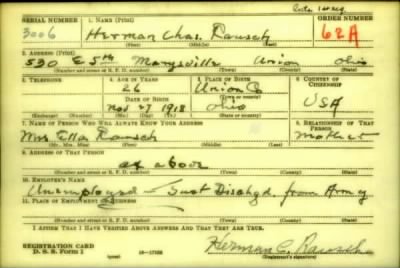 SERIAL NUMBER
1. NAME (Print)
ORDER NUMBER
3006
Herman Chas. Rausch
62A
(First) (Middle) (Last)
2. ADDRESS (Print)
530 E 5th Marysville Union Ohio
(Number and street or R. F. D. number) (Town) (County) (State)
3. TELEPHONE
4. AGE IN YEARS
5. PLACE OF BIRTH
6. COUNTRY OF CITIZENSHIP
26
Union Co
DATE OF BIRTH
(Town or county)
Nov 27 1918
Ohio
USA
(Exchange) (Number)
(Mo.) (Day) (Yr.)
(State or country)
7. NAME OF PERSON WHO WILL ALWAYS KNOW YOUR ADDRESS
8. RELATIONSHIP OF THAT PERSON
Mrs Ella Rausch
Mother
(Mr., Mrs., Miss) (First) (Middle) (Last)
9. ADDRESS OF THAT PERSON
as above
(Number and street or R. F. D. number) (Town) (County) (State)
10. EMPLOYER'S NAME
Unemployed - Just Dischgd. from Army
11. PLACE OF EMPLOYMENT OR BUSINESS
(Number and street or R. F. D. number) (Town) (County) (State)
I AFFIRM THAT I HAVE VERIFIED ABOVE ANSWERS AND THAT THEY ARE TRUE.
REGISTRATION CARD
D. S. S. Form 1
16—17105
Herman C. Rausch
(Registrant's signature)